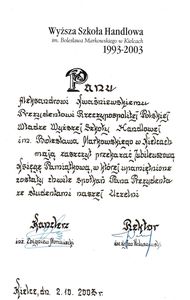 Wyższa Szkoła Handlowa
im. Bolesława Markowskiego w Kielcach
1993-2003
Panu
Aleksandrowi Kwaśniewskiemu
Prezydentowi Rzeczypospolitej Polskiej
Władze Wyższej Szkoły Handlowej
im. Bolesława Markowskiego w Kielcach
mają zaszczyt przekazać Jubileuszową
Księgę Pamiątkową, w której upamiętnione
zostały chwile spotkań Pana Prezydenta
ze studentami naszej Uczelni
Kanclerz Rektor
Kielce, dn. 2.10.2003 r.